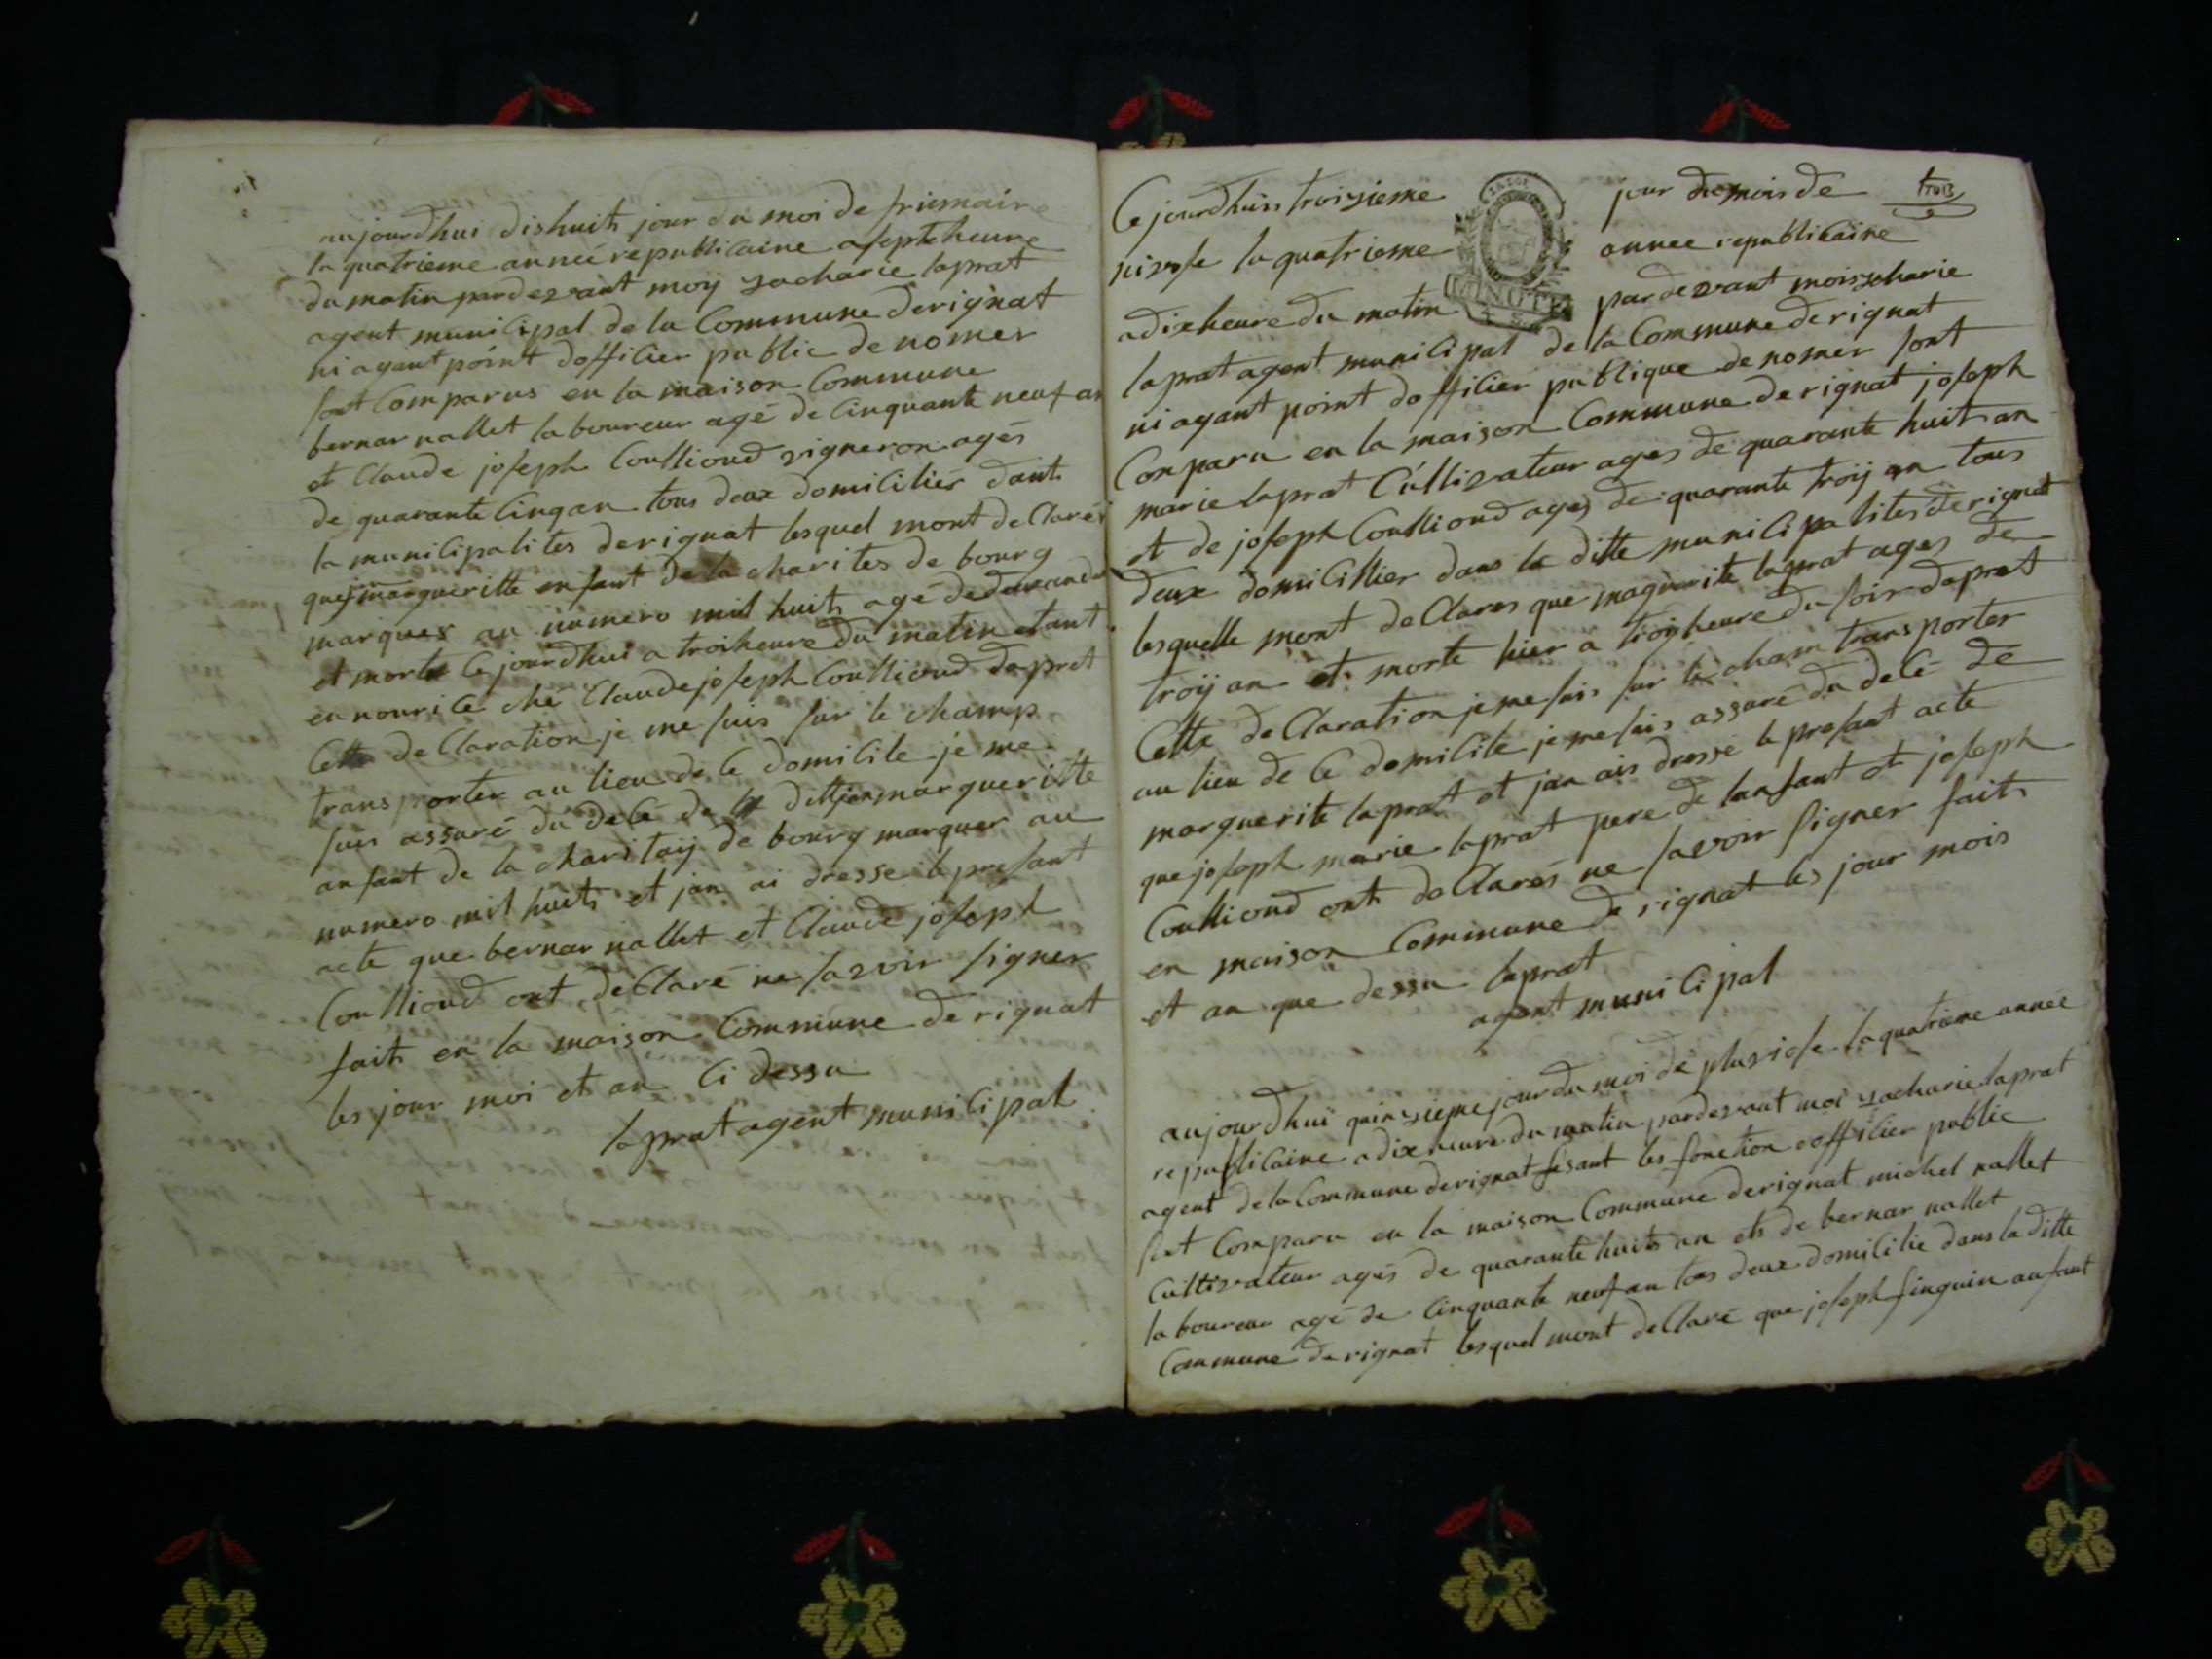 aujourdhui dishuit jour du moi de friemaire
la quatrieme anneé republicaine a septe heure
du matin pardevant moy zacharie laprat
agent municipal de la Commune derignat
ni ayant point dofficier public de nomer
sont Comparus en la maison Commune
bernar nallet laboureur agé de Cinquante neuf an
et Claude joseph Coullioud vigneron agés
de quarante Cinq an tous deux domiciliés dant
la municipalites derignat lesquel mont de Clarés
que margueritte enfant de la charites de bourg
marquer au numero mil huit agé de
et morte Ce jourdhui a troi heure du matin etant
en nourice ché Claude joseph Coullioud dapret
Cette de Claration je me suis sur le champ
transporter au lieu de Ce domicile je me
suis assuré du decé de la ditte marguerite
anfant de la charitay de bourg marquer au
numero mil huit et jan ai dresse le presant
acte que bernar nallet et Claude joseph
Coullioud ont de Claré ne savoir signer
fait en la maison Commune de rignat
les jour moi et an Ci dessu
laprat agent municipal
trois
Ce jourdhuis troisieme jour du mois de
nivose la quatrieme annee republicaine
a dix heure du matin pardevant moi zcharie
laprat agent municipal de la Commune de rignat
ni ayant point dofficier publique de nomer sont
Conparu en la maison Commune de rignat joseph
marie laprat Cultivateur ages de quarante huit an
et de joseph Coulliond ages de quarante troy an tous
deux domicillier dans la ditte municipalites de rignat
lesquelle mont de Clares que maguerite laprat ages de
troy an et morte hier a troy heure du soir dapret
Cette de Claration je me suis sur le cham transporter
au lieu de Ce domicile je me suis assuré du decé de
marguerite laprat et jan ais dressé le presant acte
que joseph marie laprat pere de lanfant et joseph
Coulliond ont de Clarés ne savoir signer fait
en maison Commune de rignat les jour mois
et an que dessu laprat
agent municipal
aujourdhui quinzieme jour du moi de pluviose la quatrieme année
republicaine a dix heure du matin pardevant moi zacharie laprat
agent de la Commune derignat fesant les fonction dofficier public
sont Comparu en la maison Commune derignat michel nallet
Cultivateur agés de quarante huit an et de bernar nallet
laboureur agé de Cinquante neuf an tous deux domicilie dans la ditte
Commune de rignat lesquel mont de Claré que joseph finguin anfant